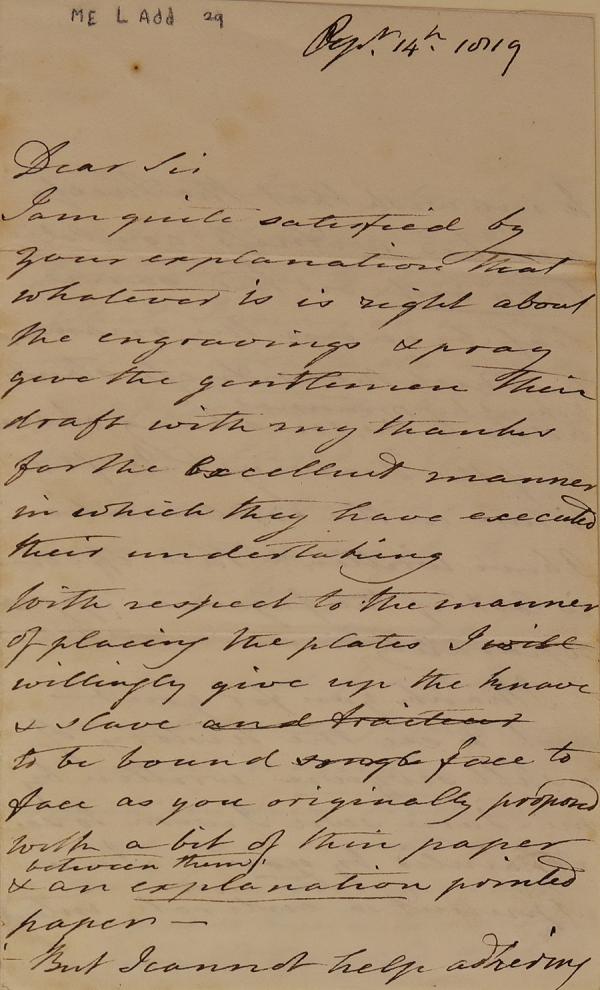 ME L Add 29
14th. 1819
Dear Sir
I am quite satisfied by
your explanation that
whatever is is right about
the engravings & pray
give the gentlemen their
draft with my thanks
for the Excellent manner
in which they have executed
their undertaking
With respect to the manner
of placing the plates I will
willingly give up the knave
& slave and traiteur
to be bound single face to
face as you originally proposed
with a bit of thin paper
between them
& an explanation printed
paper —
But I cannot help adhering